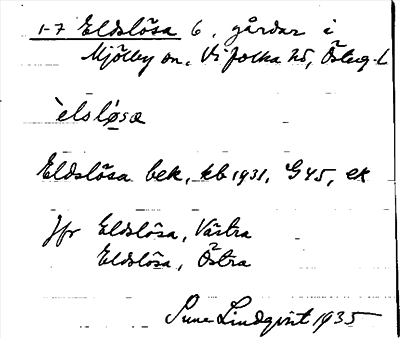 1-7 Eldslösa 6. gårdar i
Mjölby sn, Vifolka hd, Östergl
`elsløsæ
Eldslösa bek, kb 1931, G45, ek
Jfr Eldslösa, Västra
Eldslösa, Östra
Sune Lindqvist 1935